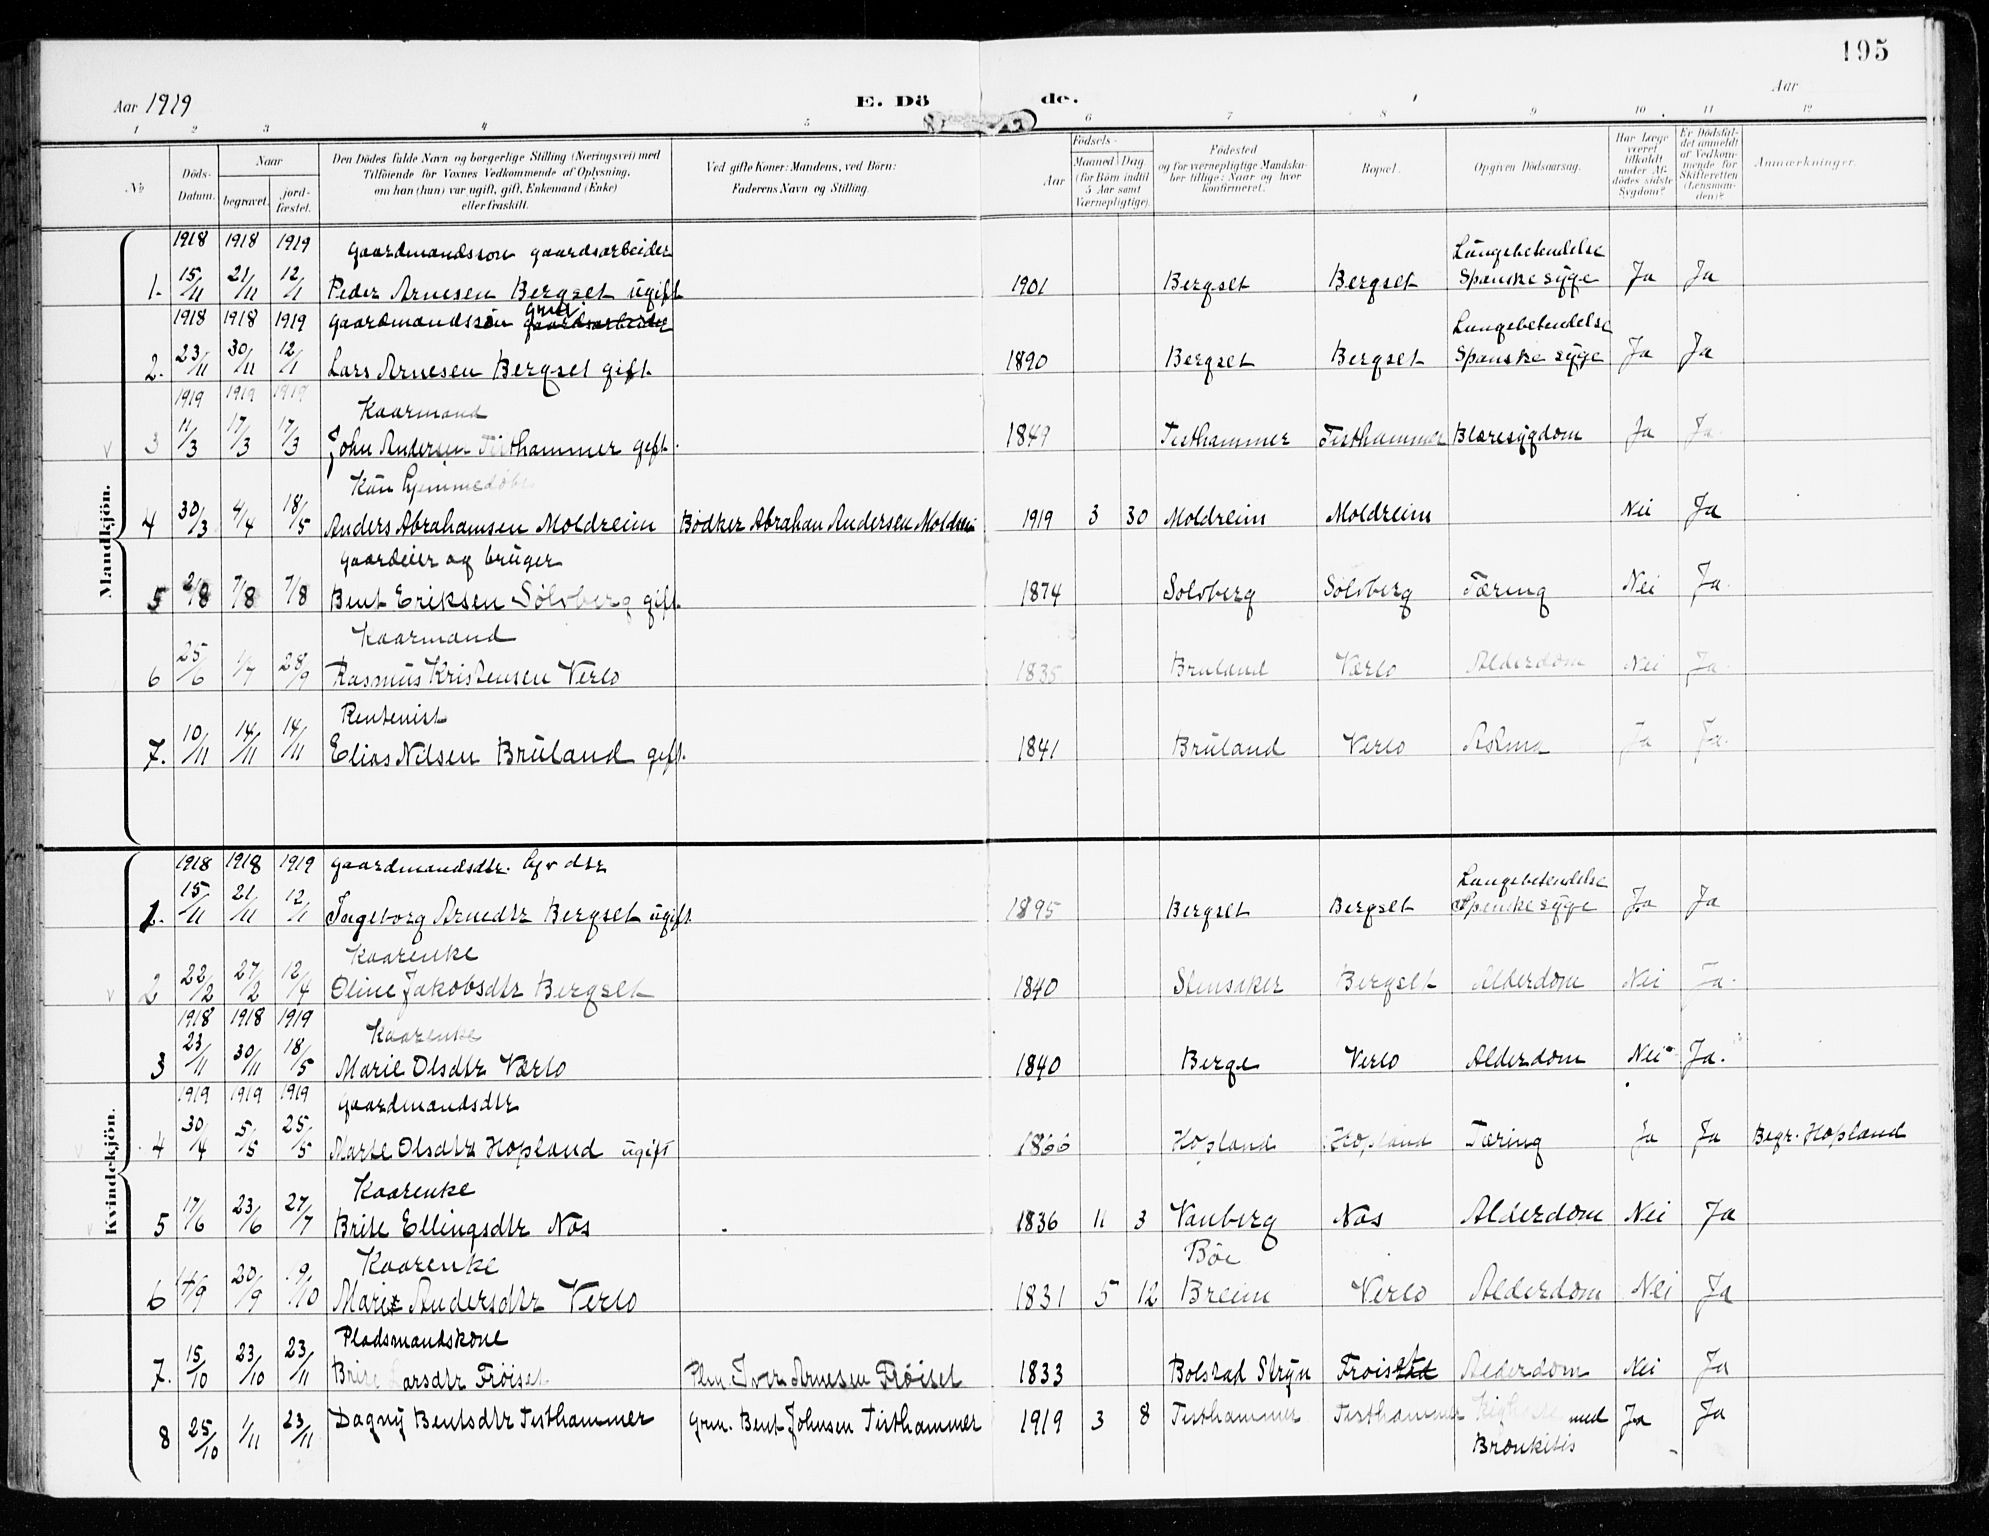 195
Aar 1919 E. Dö de. Aar
1 2 3 4 5 6 7 8 9 10 11 12
№ Döds-Datum. Naar begravet. jordfæstet. Den Dödes fulde Navn og borgerlige Stilling (Næringsvei) med Tilföiende for Voxnes Vedkommende af Oplysning, om han (hun) var ugift, gift, Enkemand (Enke) eller fraskilt. Ved gifte Koner: Mandens, ved Börn: Faderens Navn og Stilling. Födsels- Aar Maaned Dag (for Börn indtil 5 Aar samt Værnepligtige). Födested og for værnepligtige Mandskaber tillige: Naar og hvor konfirmeret. Bopæl. Opgiven Dödsaarsag. Har Læge været tilkaldt under Afdödes sidste Sygdom? Er Dödsfaldet anmeldt af Vedkommende for Skifteretten (Lensmanden)? Anmærkninger.
Mandkjön.
1918 1918 1919 Gaardmandssøn gaardsarbeider Lungebetendelse
1. 15/11 21/11 12/1 Peder Arnesen Bergset ugift 1901 Bergset Bergset Spanske syge Ja Ja
1918 1918 1919 Gaardmandssøn gaardsarbeider Lungebetendelse
2. 23/11 30/11 12/1 Lars Arnesen Bergset gift. 1890 Bergset Bergset Spanske syge Ja Ja
1919 1919 1919 Kaarmand
3 11/3 17/3 17/3 John Andersen Tisthammer gift. 1849 Tisthammer Tisthammer Blæresygdom Ja Ja.
Kun hjemmedøbt
4 30/3 4/4 18/5 Anders Abrahamsen Moldreim Bødker Abraham Andersen Moldreim 1919 3 30 Moldreim Moldreim Nei Ja
Gaardeier og bruger
5 2/8 7/8 7/8 Bent Eriksen Sølvberg gift. 1874 Solvberg Sølvberg Tæring Nei Ja.
Kaarmand
6 25/6 1/7 28/9 Rasmus Kristensen Verlo 1835 Bruland Værlo Alderdom Nei Ja.
Rentenist
7. 10/11 14/11 14/11 Elias Nilsen Bruland gift. 1841 Bruland Verlo Astma Ja Ja.
Kvindekjön.
1918 1918 1919 Gaardmandsdtr. Lungebetendelse
1. 15/11 21/11 12/1 Ingeborg Arnedtr Bergset ugift. 1895 Bergset Bergset Spanske syge Ja Ja
Kaarenke
2 22/2 27/2 12/4 Oline Jakobsdtr Bergset 1840 Stensaker Bergset Alderdom Nei Ja.
1918 1918 1919 Kaarenke
3 23/11 30/11 18/5 Marie Olsdtr Værlo 1840 Berge Verlo Alderdom Nei Ja.
1919 1919 1919 Gaardmandsdtr
4 30/4 5/5 25/5 Marte Olsdtr Hopland ugift 1866 Hopland Hopland Tæring Ja Ja Begr. Hopland
Kaarenke
5 17/6 23/6 27/7 Brite Ellingsdtr Nos 1836 11 3 Vanberg Nos Alderdom Nei Ja
Kaarenke Böe
6 14/9 20/9 19/10 Marie Andersdtr Verlo 1831 5 12 Breim Verlo Alderdom Nei Ja
Pladsmandskone
7. 15/10 23/10 23/11 Brite Larsdtr Frøiset Plm. Iver Arnesen Frøiset 1833 Bolstad Stryn Froiset Alderdom Nei Ja
8 25/10 1/11 23/11 Dagny Bentsdtr Tisthammer Grm. Bent Johnsen Tisthammer 1919 3 8 Tisthammer Tisthammer Kighoste med Ja Ja
Bronkitis